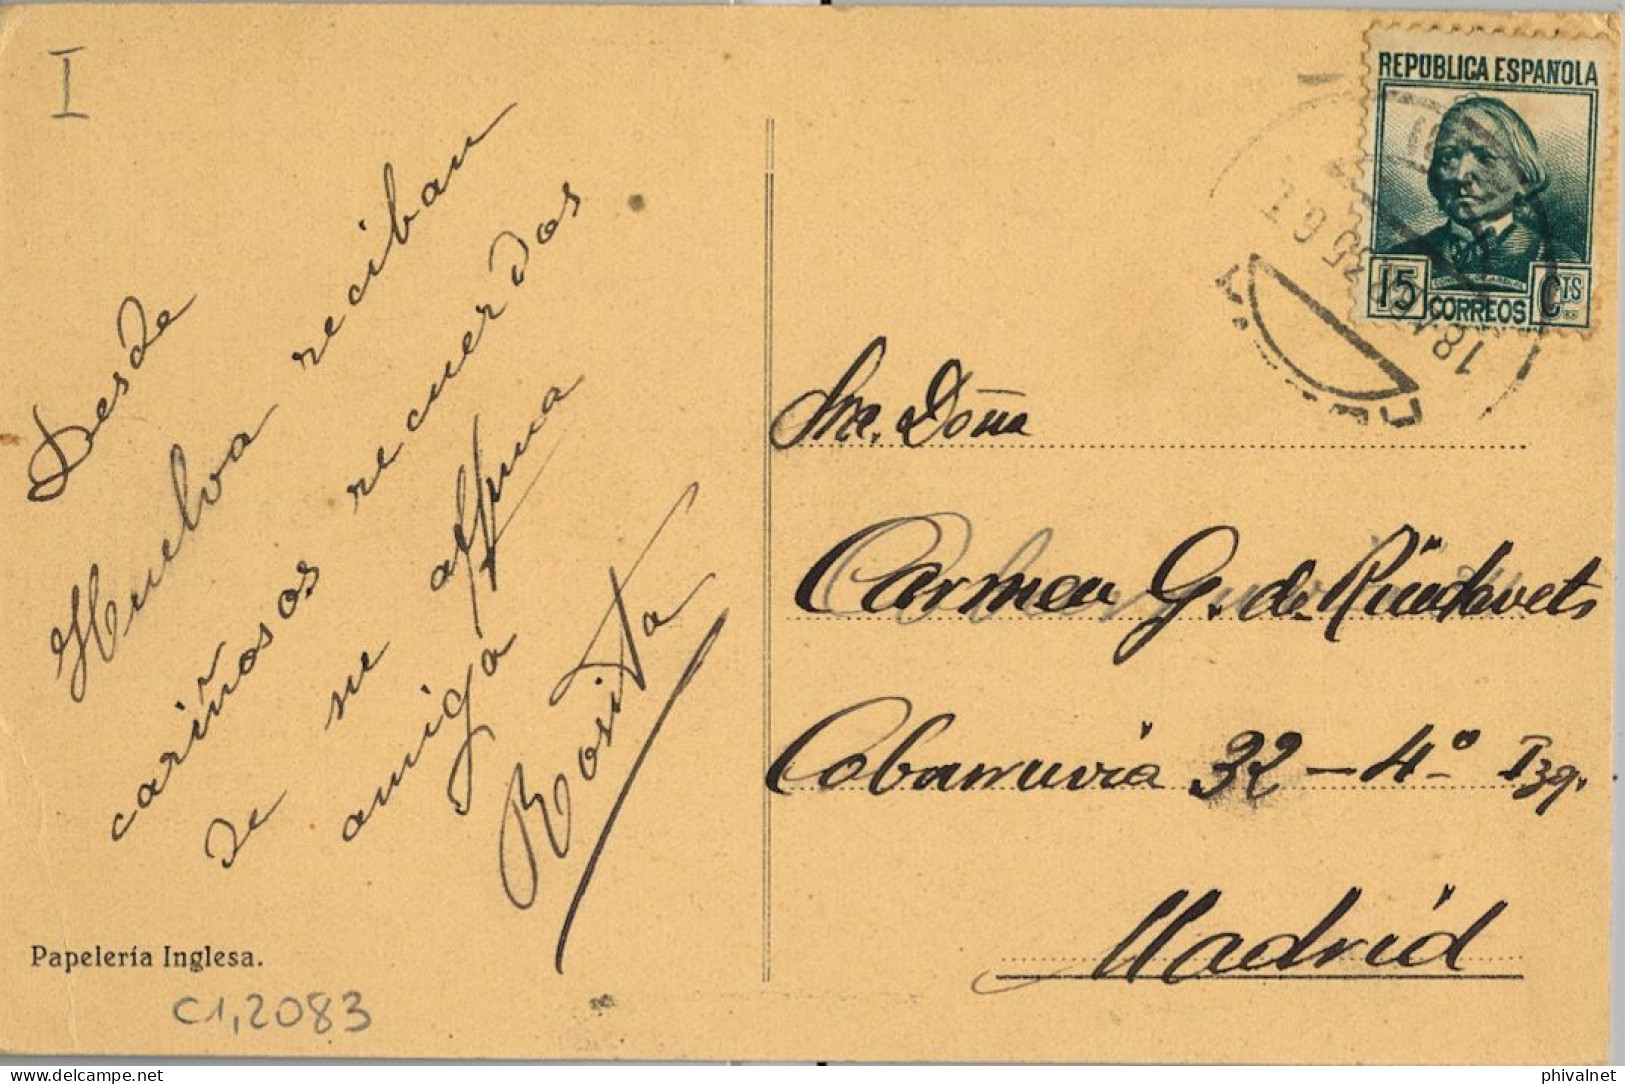 I
Desde
Huelva reciban
cariñosos recuerdos
de su affma
amiga
Rosita
Papelería Inglesa.
C1,2083
REPÚBLICA ESPAÑOLA
15 CORREOS CTS
18
35
Sra. Doña
Carmen G. de Riudavets
Cobarruvia 32 - 4º Izq.
Madrid
delcampe.net
phivalnet